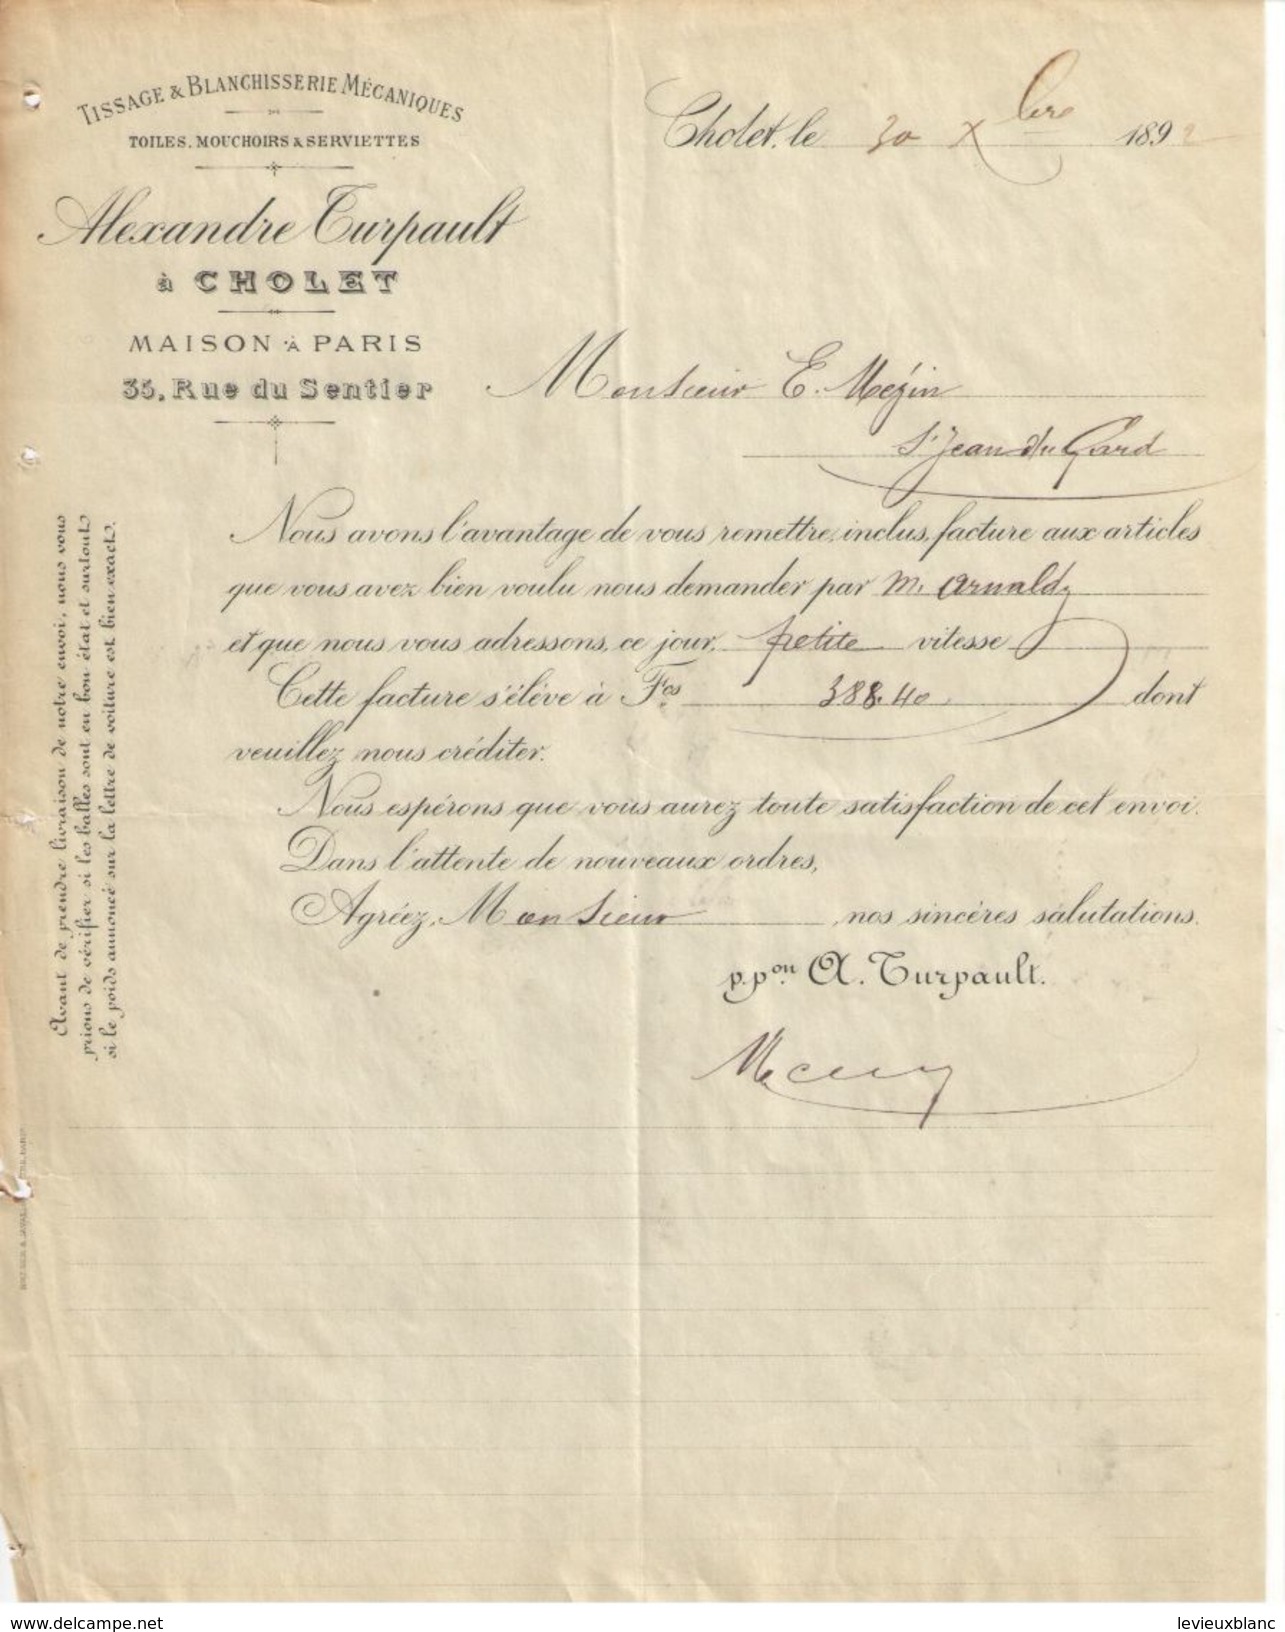 TISSAGE & BLANCHISSERIE MÉCANIQUES
TOILES, MOUCHOIRS & SERVIETTES
Alexandre Turpault
à CHOLET
MAISON À PARIS
35, Rue du Sentier
Cholet, le 30 Xbre 1892
Monsieur E. Mézin
St Jean du Gard
Nous avons l'avantage de vous remettre, inclus, facture aux articles
que vous avez bien voulu nous demander par M. Arnald
et que nous vous adressons, ce jour, petite vitesse
Cette facture s'élève à Fcs 388.40 dont
veuillez nous créditer.
Nous espérons que vous aurez toute satisfaction de cet envoi.
Dans l'attente de nouveaux ordres,
Agréez, Monsieur, nos sincères salutations.
p.pon A. Turpault.
Avant de prendre livraison de notre envoi, nous vous
prions de vérifier si les balles sont en bon état et surtout
si le poids annoncé sur la lettre de voiture est bien exact.
www.delcampe.net
levieuxblanc